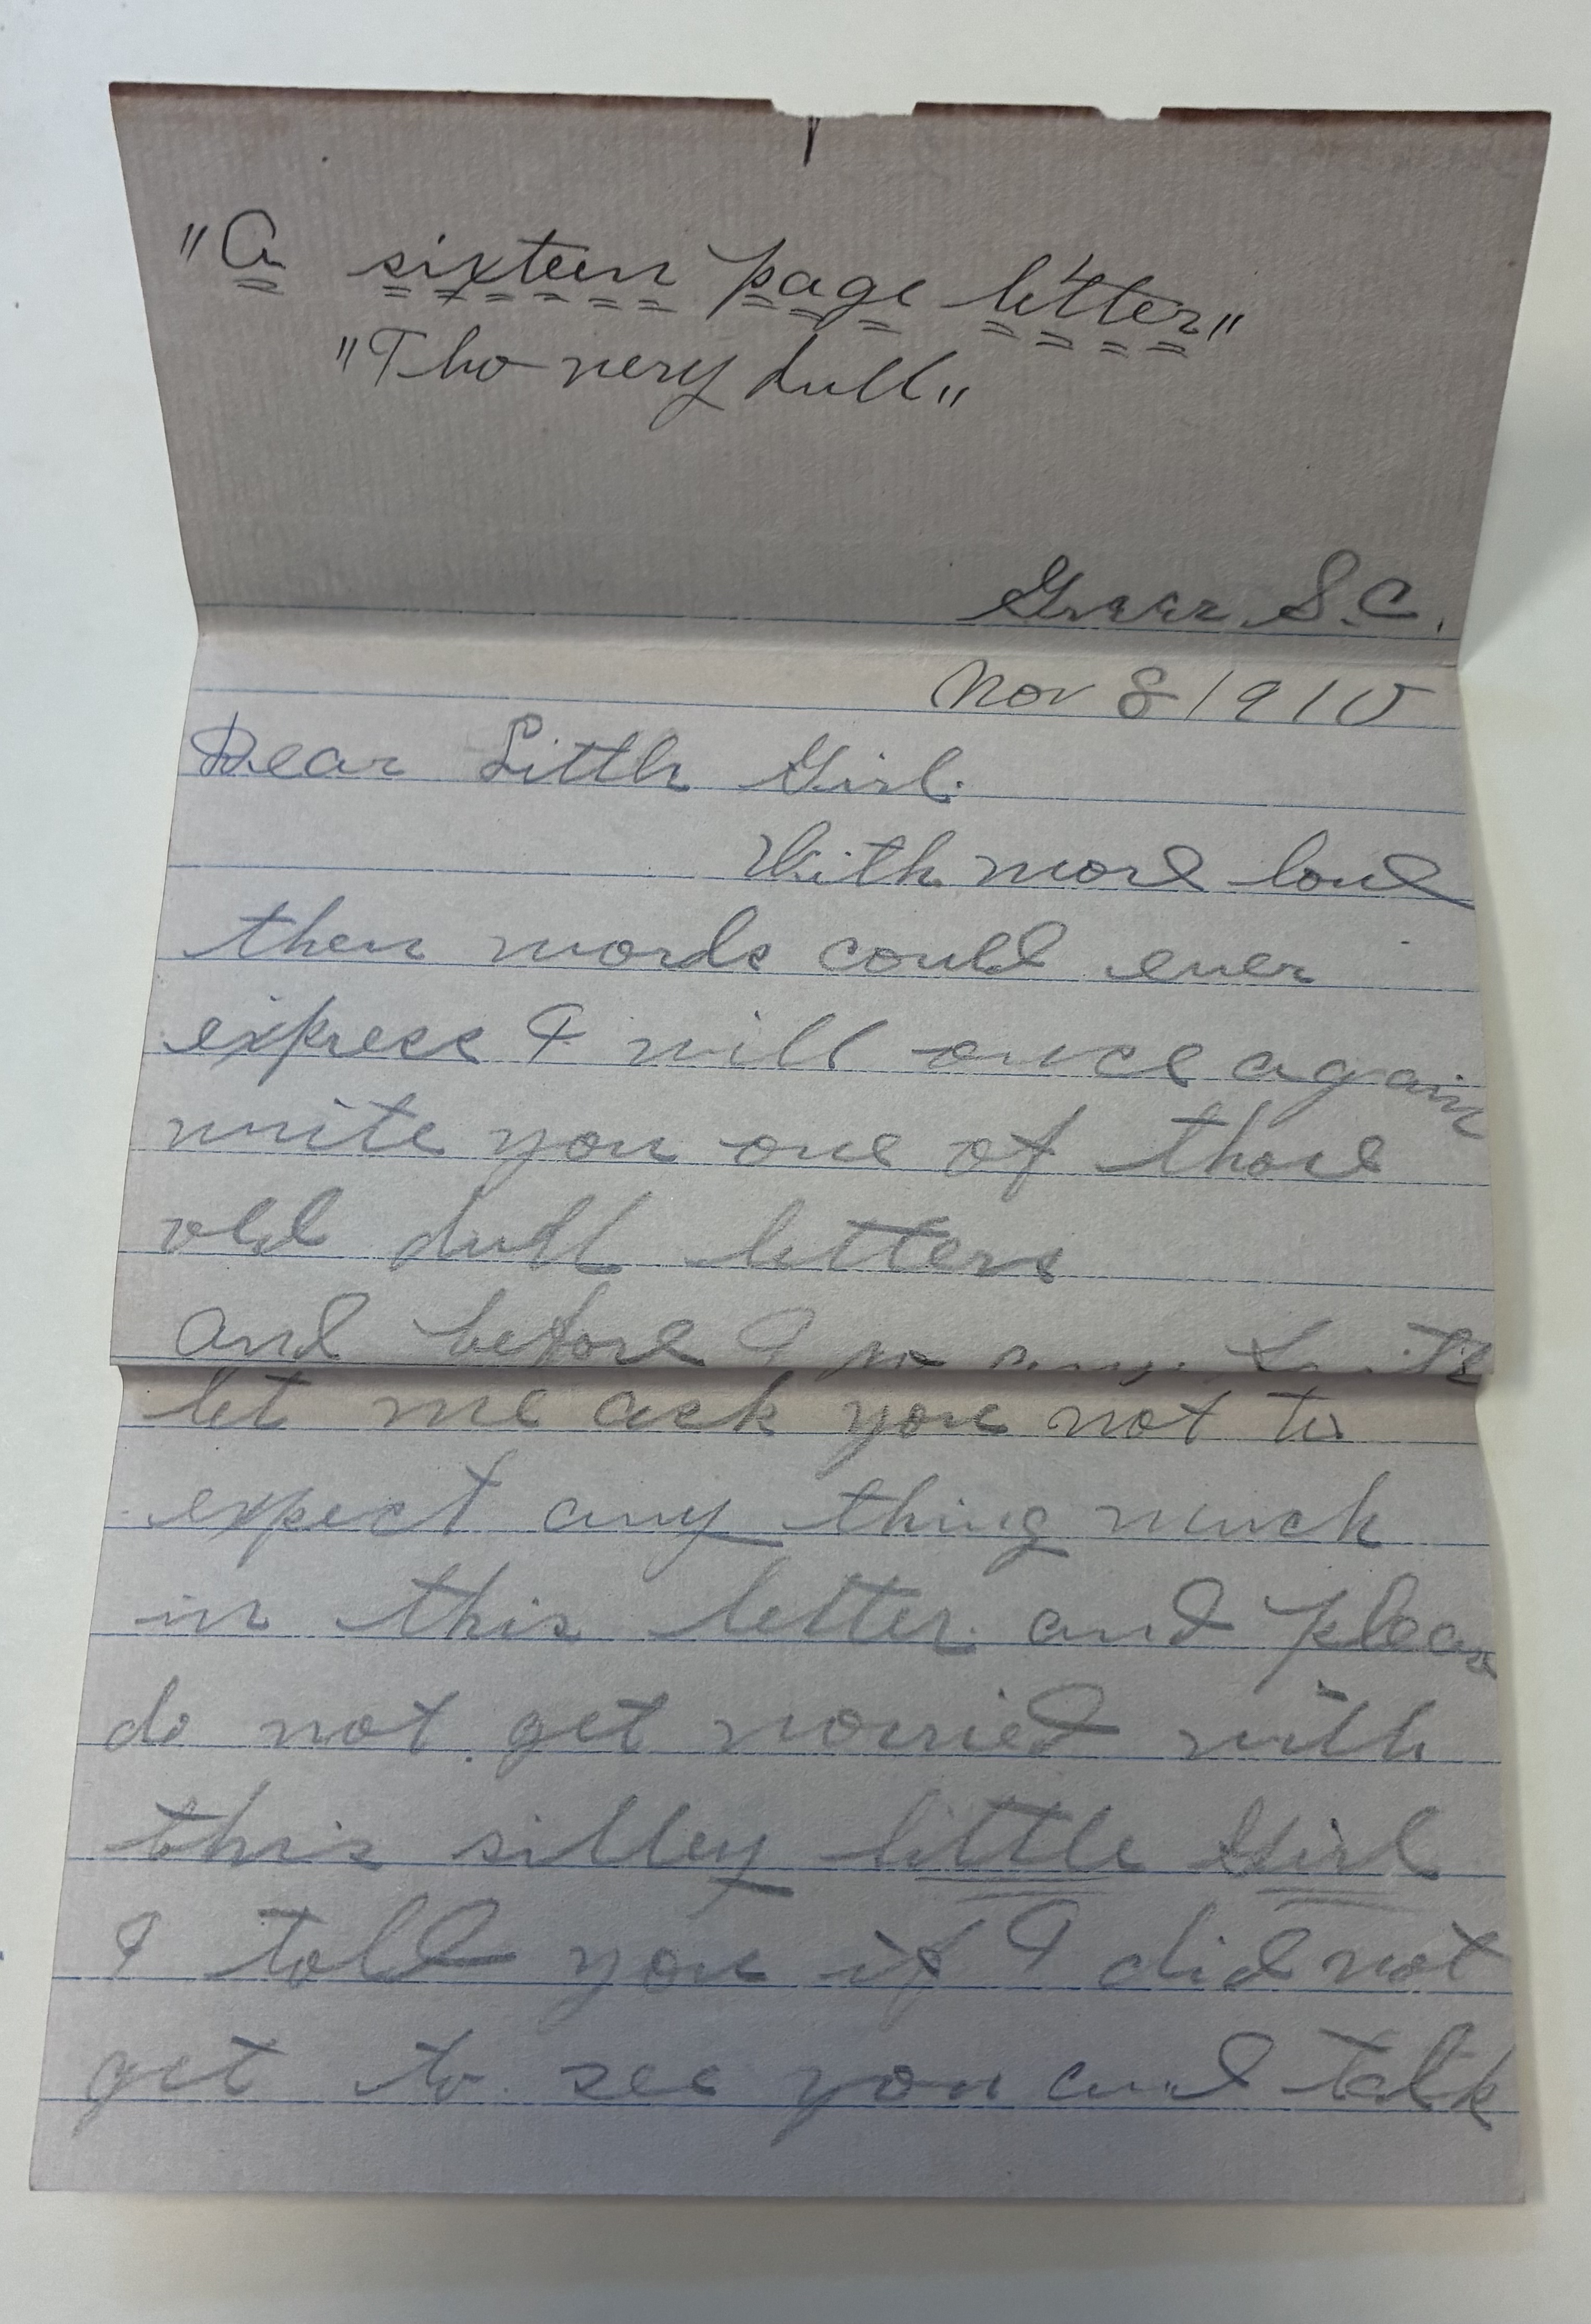 "A sixteen page letter"
"Tho very dull"
Greer S.C.
Nov 8 1910
Dear Little Girl.
With more love
then words could ever
express I will once again
write you one of those
old dull letters
and before I go any
let me ask you not to
expect any thing much
in this letter. and pleas
do not get worried with
this silley little Girl
I told you if I did not
get to see you and talk